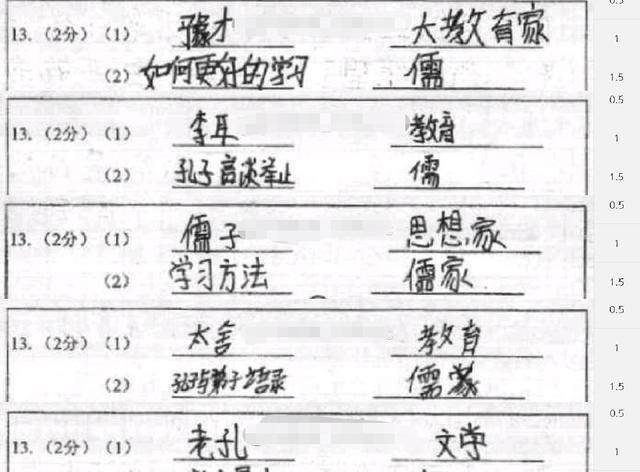 0.5
13.（2分）（1） 豫才 大教育家 1
（2） 如何更好的学习 儒 1.5
0.5
13.（2分）（1） 李耳 教育 1
（2） 孔子言谈举止 儒 1.5
0.5
13.（2分）（1） 儒子 思想家 1
（2） 学习方法 儒家 1.5
0.5
13.（2分）（1） 太舍 教育 1
（2） 孔子与弟子语录 儒家 1.5
0.5
13.（2分）（1） 老孔 文学 1